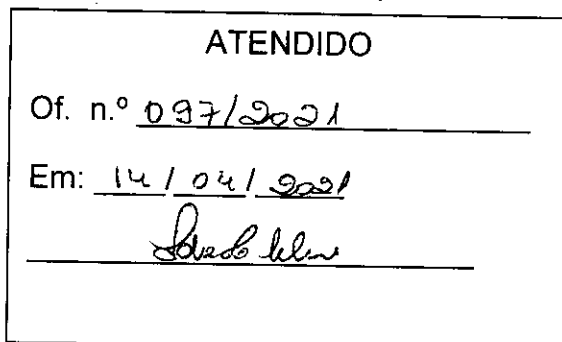 ATENDIDO
Of. n.º 097/2021
Em: 14 / 04 / 2021